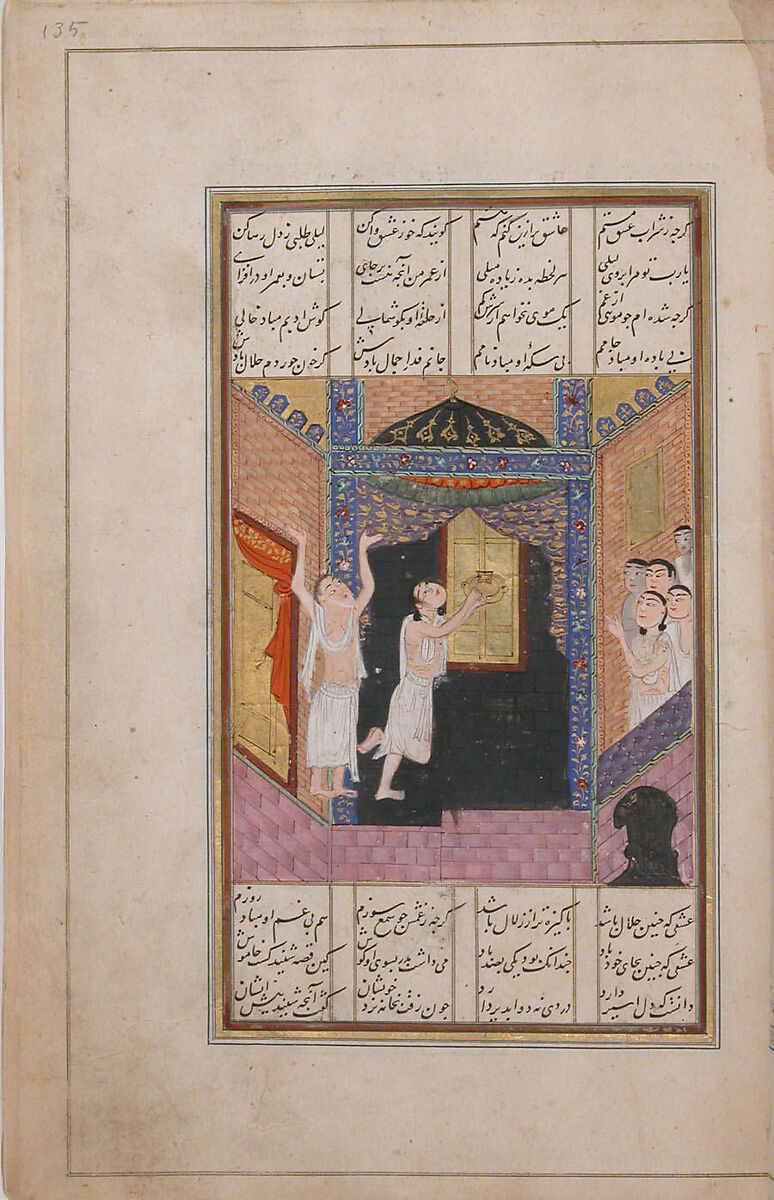 135
گرچه ز شراب عشق مستم عاشق تر ازین کنم که هستم گویند که خو ز عشق واکن لیلی طلبی ز دل رها کن
یارب تو مرا بروی لیلی هر لحظه بده زیاده میلی از عمر من آنچه هست بر جای بستان و بعمر او در افزای
گرچه شده ام چو موی از غم یک موی نخواهم از سرش کم از حلقه او بگوشمالی گوش ادبم مباد خالی
بی باده او مباد جامم بی سکه او مباد نامم جانم فدا جمال بادش گر خون خوردم حلال بادش
عشقی که چنین حلال باشد پاکیزه تر از زلال باشد گرچه ز غمش چو شمع سوزم هم بی غم او مباد روزم
عشقی که چنین بجای خود باد چندانک بود یکی بصد باد می داشت پدر بسوی او گوش کین قصه شنید گشت خاموش
دانست که دل اسیر دارد دردی نه دوا پذیر دارد چون رفت بخانه نزد خویشان گفت آنچه شنید پیش ایشان